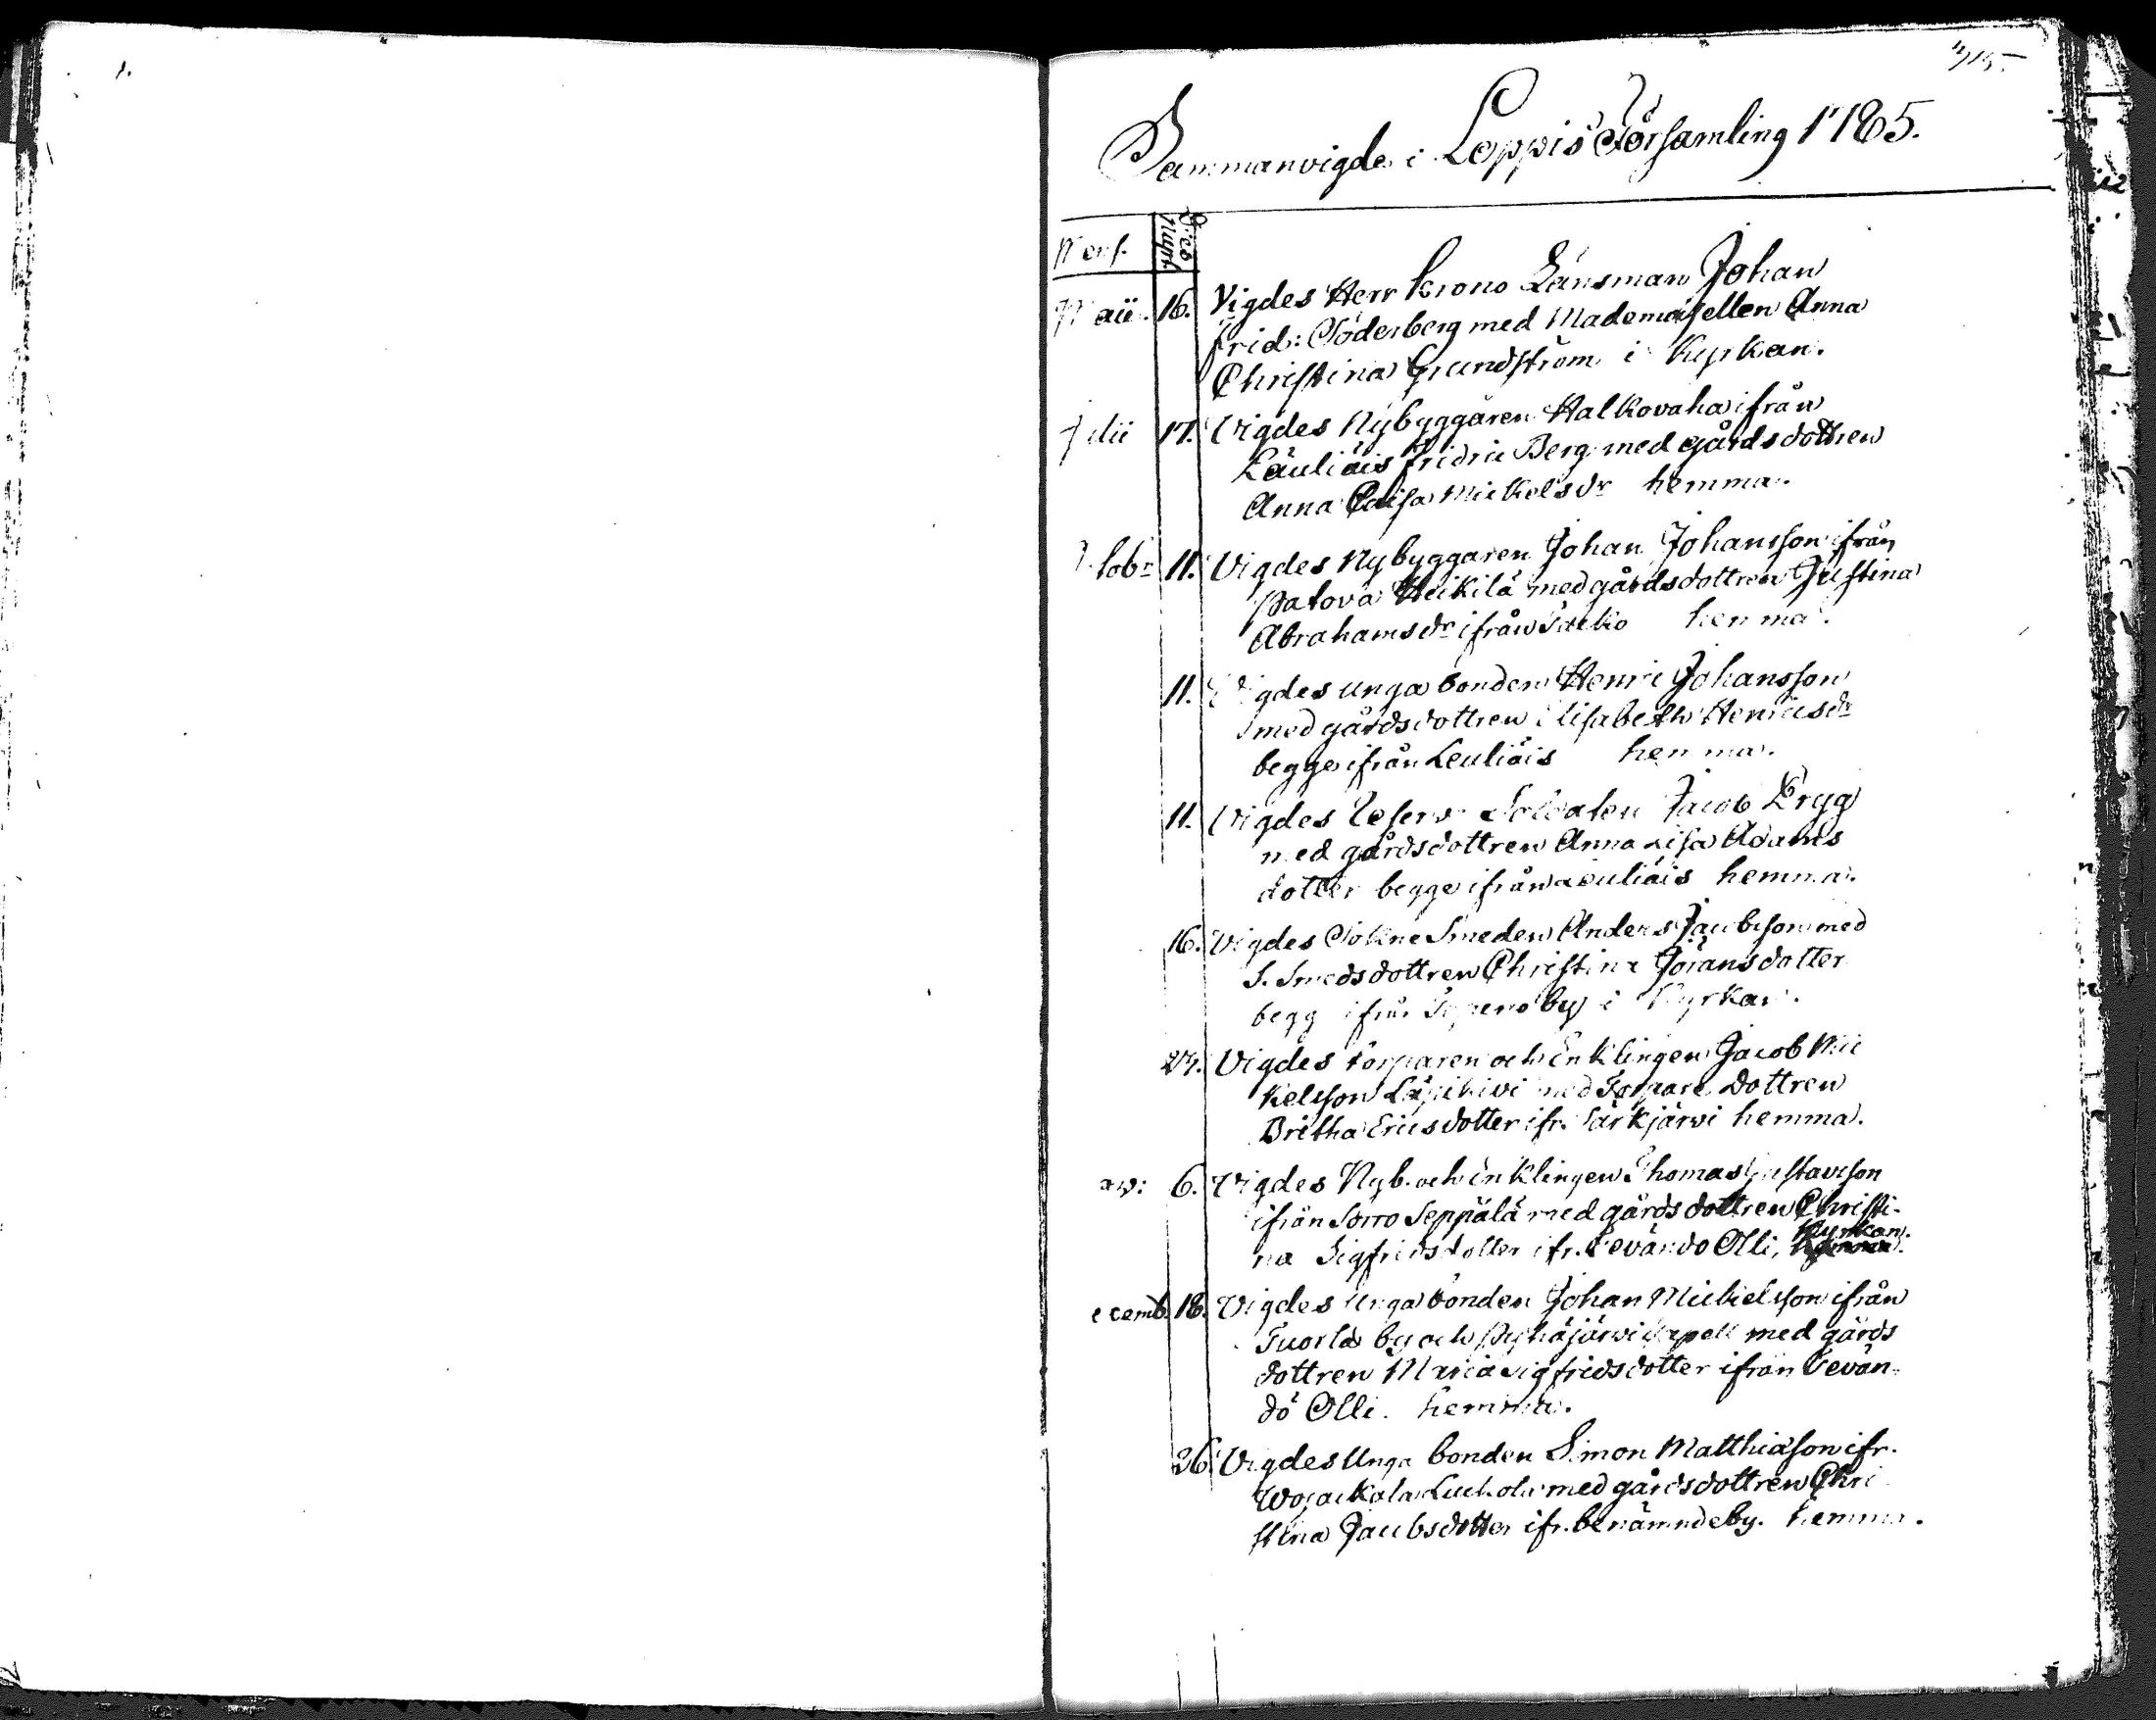 1.
415.
Sammanvigde i Loppis Församling 1785.
Mens.
Maii. 16. Vigdes Herr Krono Länsman Johan
Frid: Söderberg med Mademoisellen Anna
Christina Grundström i Kyrkan.
Julii 17. Vigdes Nybyggaren Halkovaha ifrån
Läuliäis Fridric Berg med gårdsdottren
Anna Caisa Mickelsdr hemma.
11. Vigdes Nybyggaren Johan Johansson ifrån
Patova Heikilä med gårdsdottren Justina
Abrahamsdr ifrån hemma.
11. Vigdes unga bonden Henric Johansson
med gårdsdottren Elisabeth Henricsdr
begge ifrån Leuliäis hemma.
11. Vigdes Reserv Soldaten Jacob Tryg
med gårdsdottren Anna Lisa Adams
dotter begge ifrån Leuliäis hemma.
16. Vigdes Sokne Smeden Anders Jacobsson med
S. Smedsdottren Christina Göransdotter
begg ifrån by i Kyrkan.
27. Vigdes Torparen och Enklingen Jacob Mic
kelsson med Torpare Dottren
Britha Ericsdotter ifr. Särkjärwi hemma.
6. Vigdes Nyb. och Enklingen Thomas Gustavsson
ifrån Sorro Seppälä med gårdsdottren Christi-
na Sigfridsdotter ifr. Olli, Kyrkan.
ecemb. 18. Vigdes Unga bonden Johan Mickelsson ifrån
Tuorla by och Pyhäjärwi Capell med gårds
dottren Maria Sigfridsdotter ifrån Levän-
dö Olli. hemma.
26. Vigdes Unga bonden Simon Matthiasson ifr.
med gårdsdottren Chri
stina Jacobsdotter ifr. benämnde by. hemma.